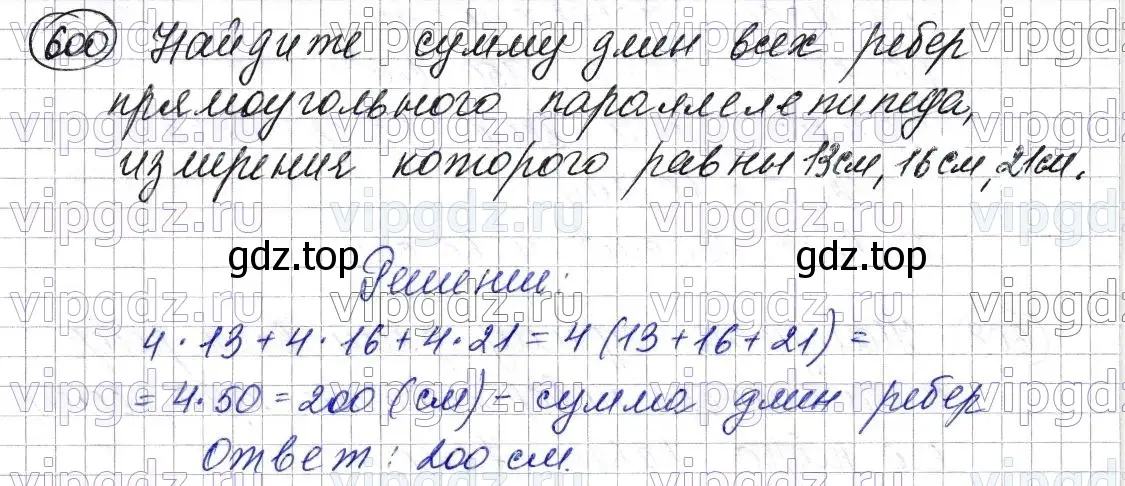 600 Найдите сумму длин всех ребер
прямоугольного параллелепипеда,
измерения которого равны 13см, 16см, 21см.
gdz.top gdz.top
Решение:
4·13+4·16+4·21=4(13+16+21)=
=4·50=200(см)- сумма длин ребер
Ответ: 200 см.
vipgdz.ru